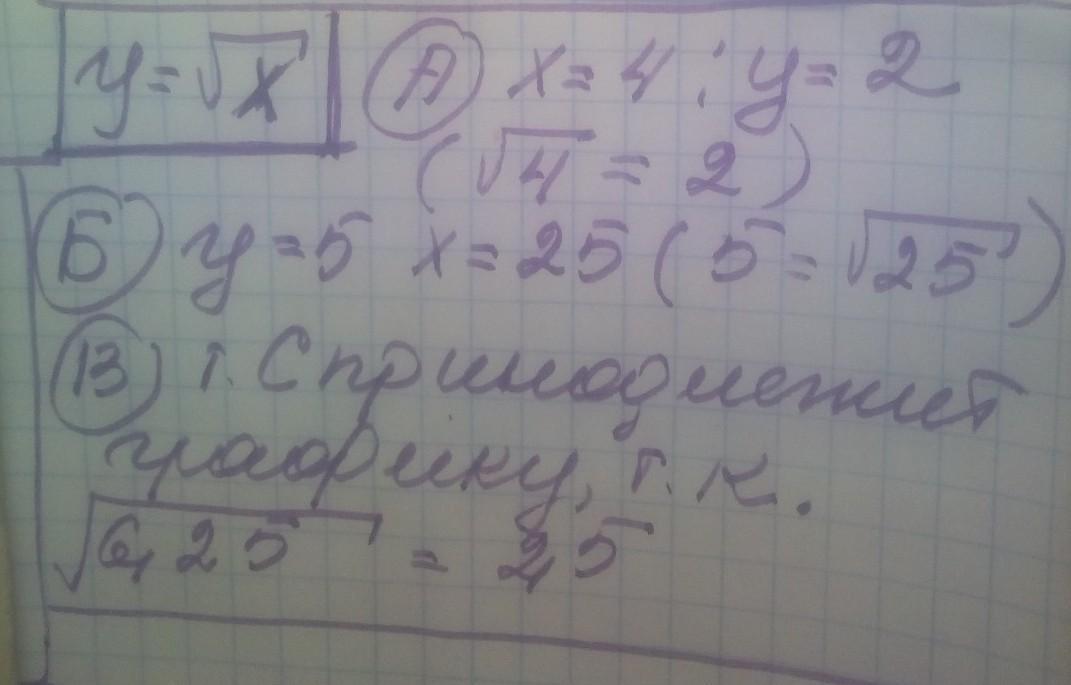 y=√x (А) x=4; y=2
(√4 = 2)
(Б) y=5 x=25 (5=√25)
(В) т. С принадлежит
графику, т. к.
√6,25 = 2,5